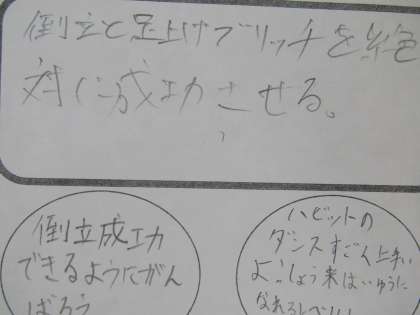 倒立と足上げブリッチを絶
対に成功させる。
倒立成功
できるようにがん
ばろう
ハビットの
ダンスすごく上手い
よ。しょう来はいゆうに
なれるレベル!